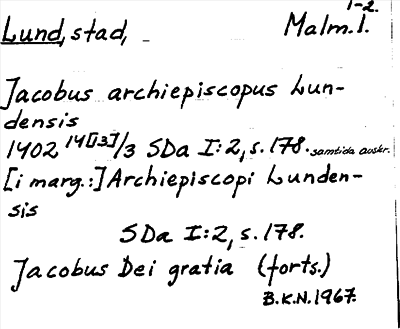 1-2.
Lund, stad, Malm.l.
Jacobus archiepiscopus Lun-
densis
1402 14[13]/3 SDa I:2, s. 178. samtida avskr.
[i marg.:] Archiepiscopi Lunden-
sis
SDa I:2, s. 178.
Jacobus Dei gratia (forts.)
B.K.N. 1967.